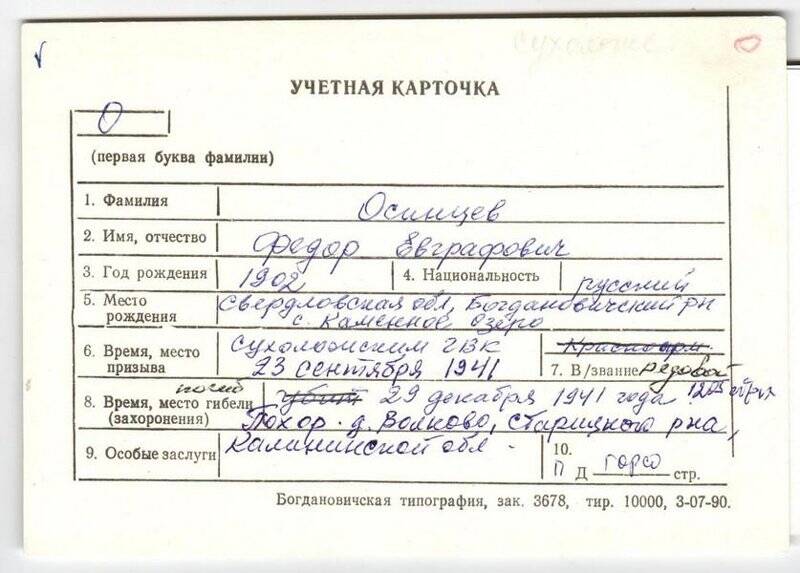 Сухоложс
УЧЕТНАЯ КАРТОЧКА
О
(первая буква фамилии)
1. Фамилия Осинцев
2. Имя, отчество Федор Евграфович
3. Год рождения 1902 4. Национальность русский
5. Место рождения Свердловская обл, Богдановичский рн
с. Каменное озеро
6. Время, место призыва Сухоложским ГВК Красноарм
23 сентября 1941 7. В/звание рядовой
погиб
8. Время, место гибели (захоронения) убит 29 декабря 1941 года
Похор. д. Волково, Старицкого рна,
9. Особые заслуги Калининской обл.
10. П Д горо стр.
Богдановичская типография, зак. 3678, тир. 10000, 3-07-90.